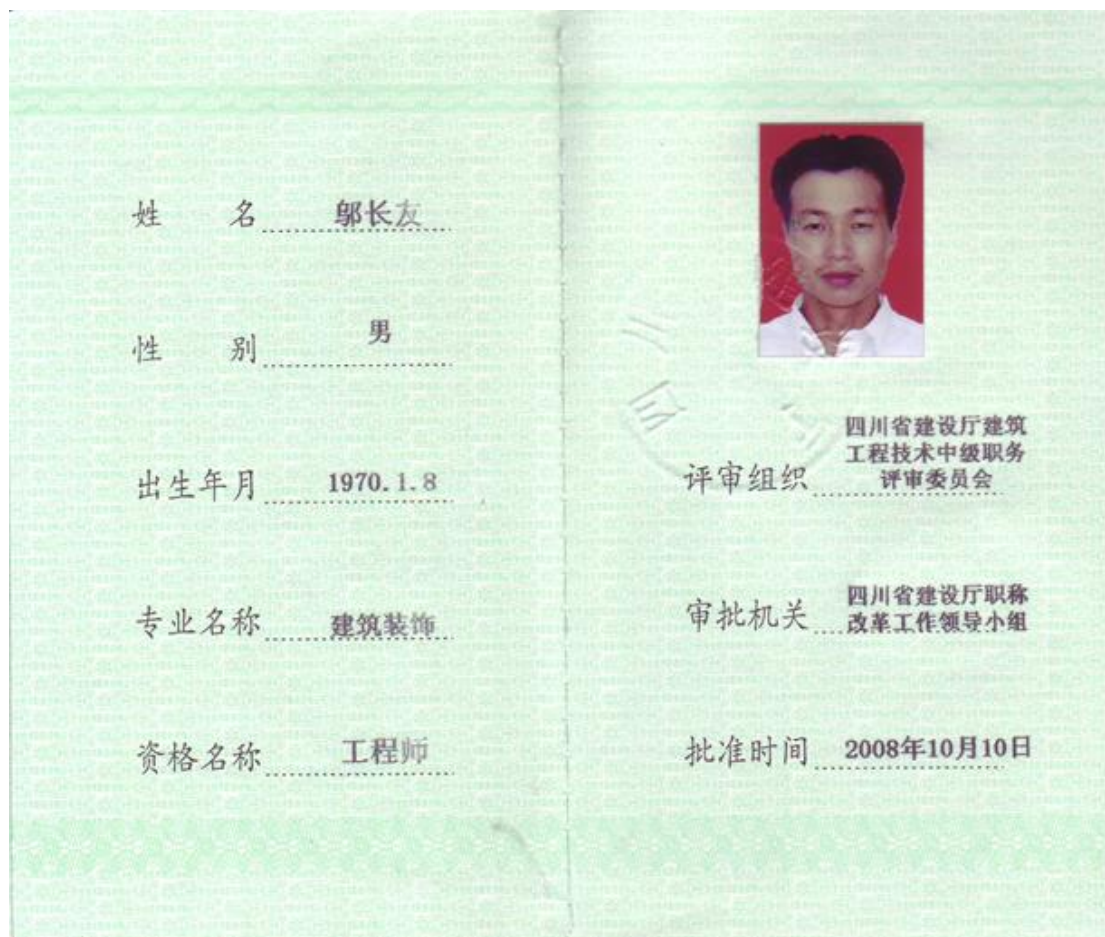 姓 名 邬长友
性 别 男
出生年月 1970.1.8
专业名称 建筑装饰
资格名称 工程师
四川省建设厅建筑
工程技术中级职务
评审组织 评审委员会
四川省建设厅职称
审批机关 改革工作领导小组
批准时间 2008年10月10日